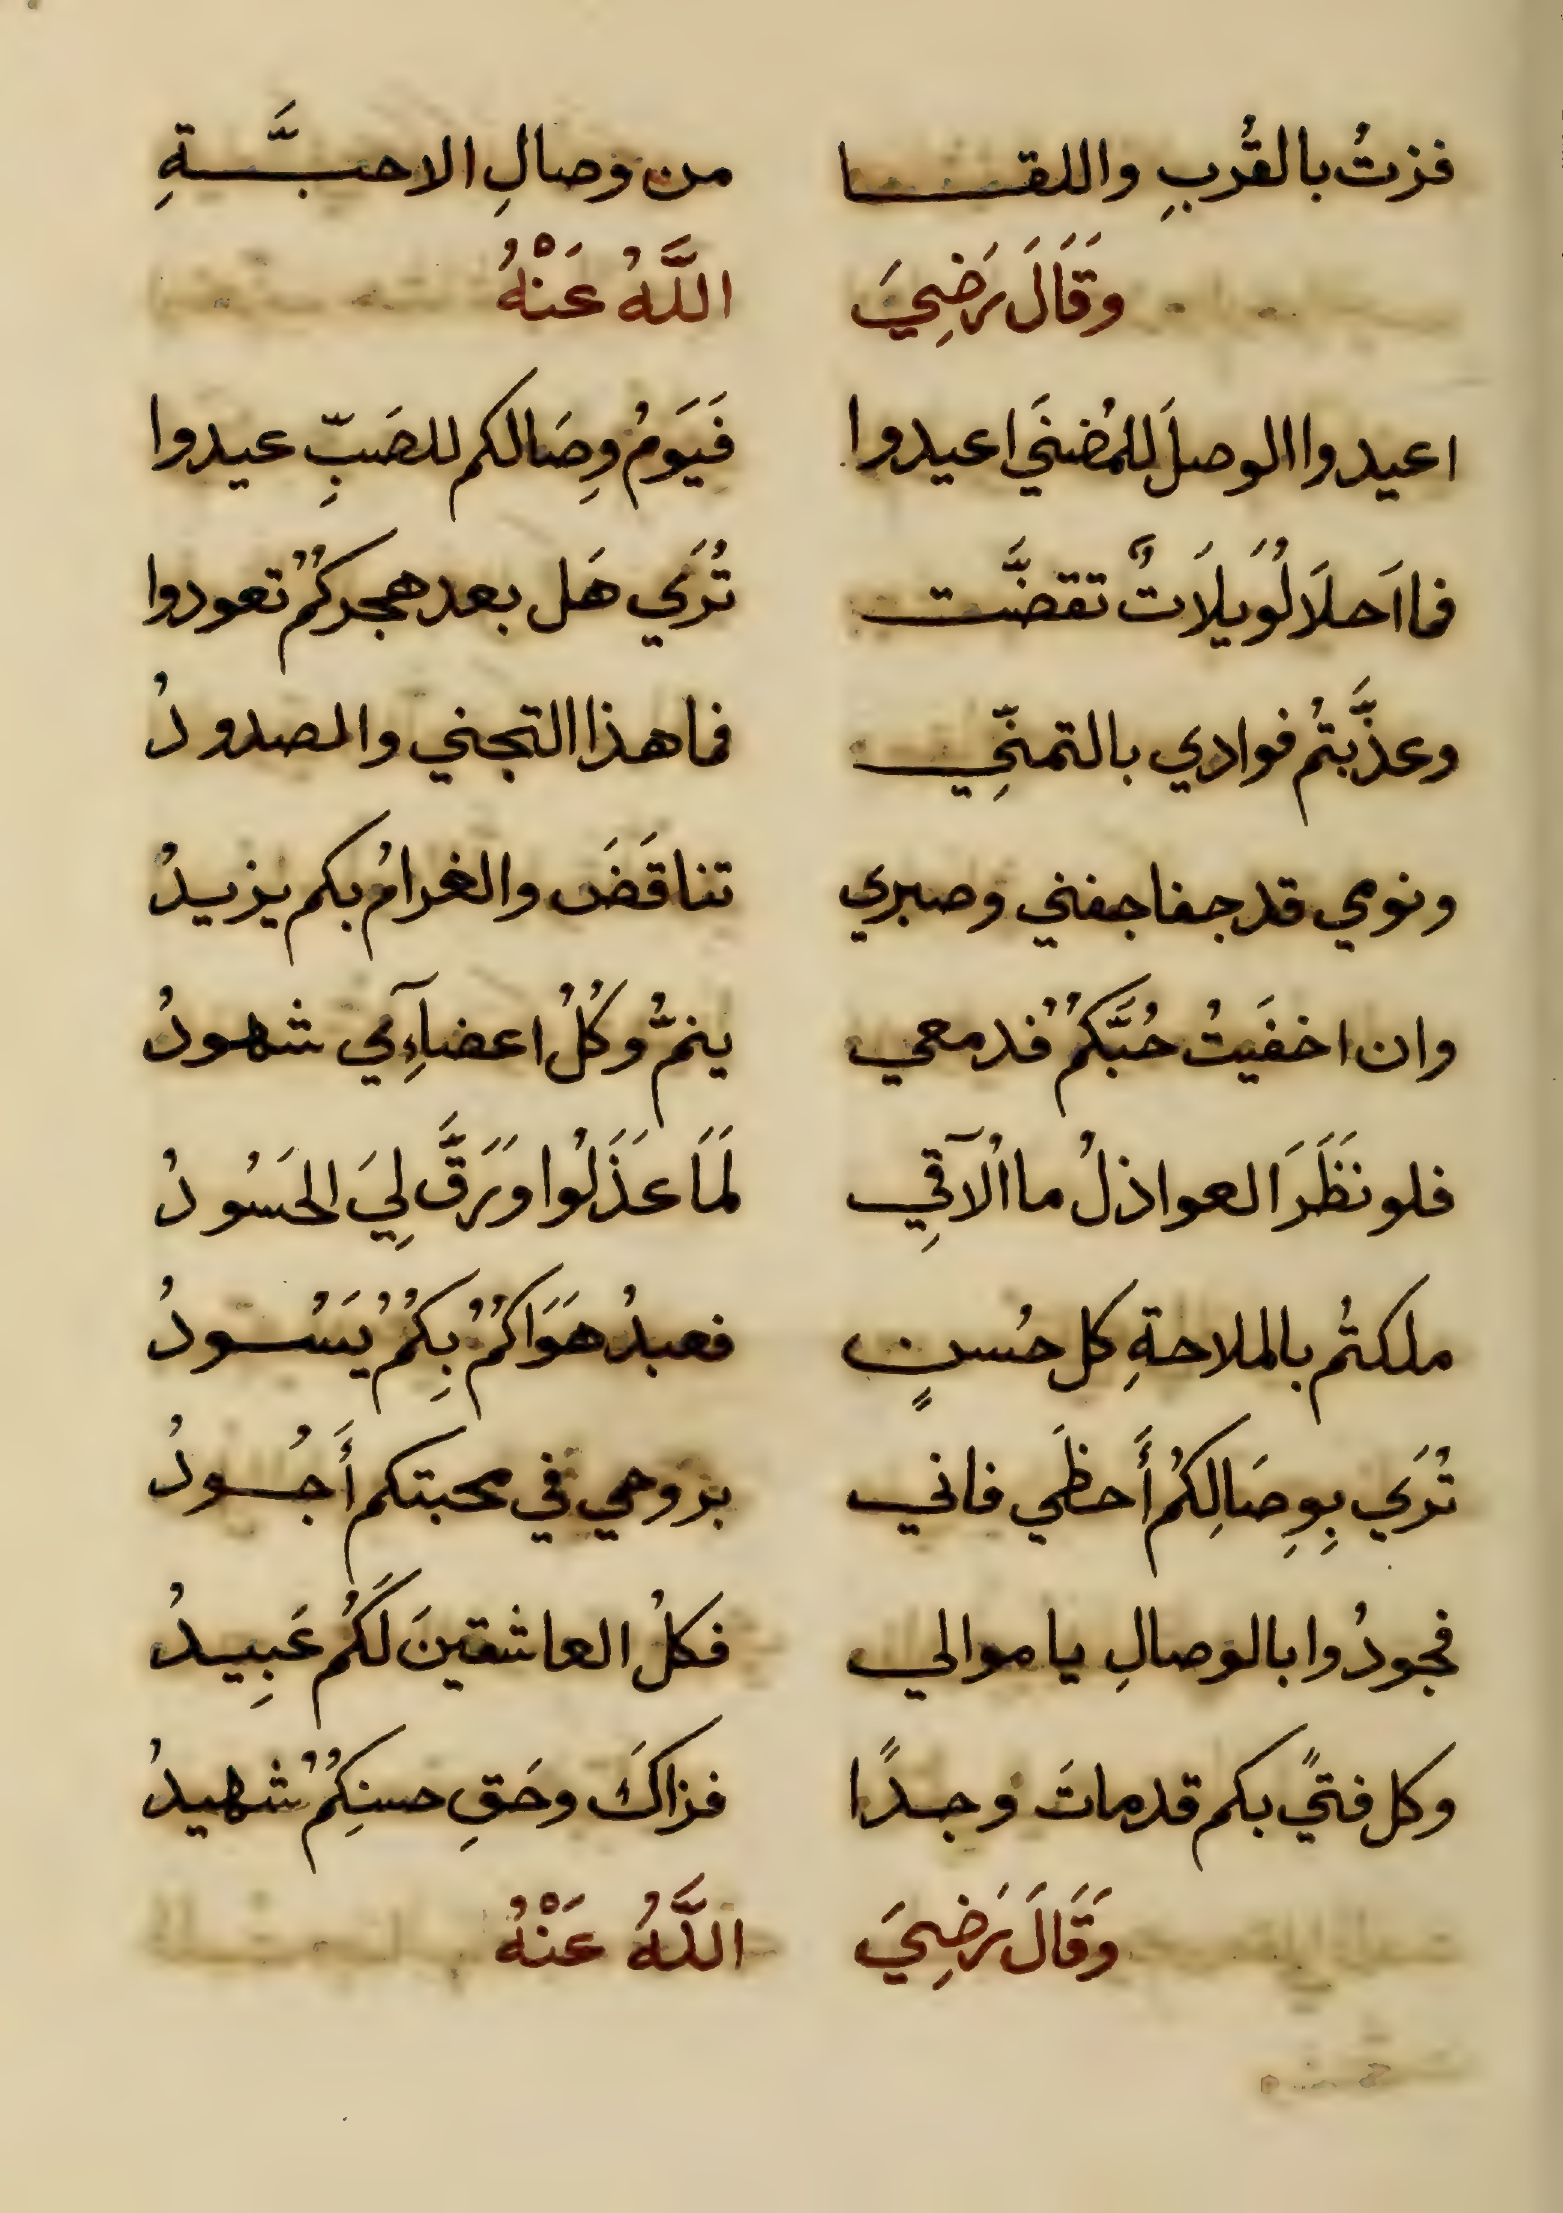 فزتُ بالقُربِ واللقـــا من وصالِ الاحبَّـــةِ
وَقَالَ رَضِيَ اللَّهُ عَنْهُ
اعيدوا الوصلَ للمُضنَي اعيدوا فَيَومُ وِصَالكم للصَبِّ عيدوا
فما اَحلاَ لُوَيلاَتٌ تقضَّت تُرَي هَل بعد هجركُمُ تعودوا
وعذَّبتُم فوادي بالتمنِّي فما هذا التجني والصدودُ
ونومي قد جفا جفني وصبري تناقَضَ والغرامُ بكم يزيدُ
وان اخفَيتُ حُبَّكُمُ فدمعي ينمُّ وكُلُ اعضآءِي شهودُ
فلو نَظَرَ العواذلُ ما اُلآقِي لَمَا عَذَلُوا وَرَقَّ لِيَ الحَسُودُ
ملكتُم بالملاحةِ كل حُسنٍ فعبدُ هَوَاكُمُ بِكُمُ يَسُـودُ
تُرَي بِوِصَالِكُم أَحظَي فاني بروحي في محبتكم أَجُـودُ
فجودُوا بالوصالِ يا موالي فكلُ العاشقينَ لَكُم عَبِيدُ
وكل فتيً بكم قد ماتَ وجدًا فزاكَ وحَقِ حسنِكُمُ شهيدُ
وَقَالَ رَضِيَ اللَّهُ عَنْهُ